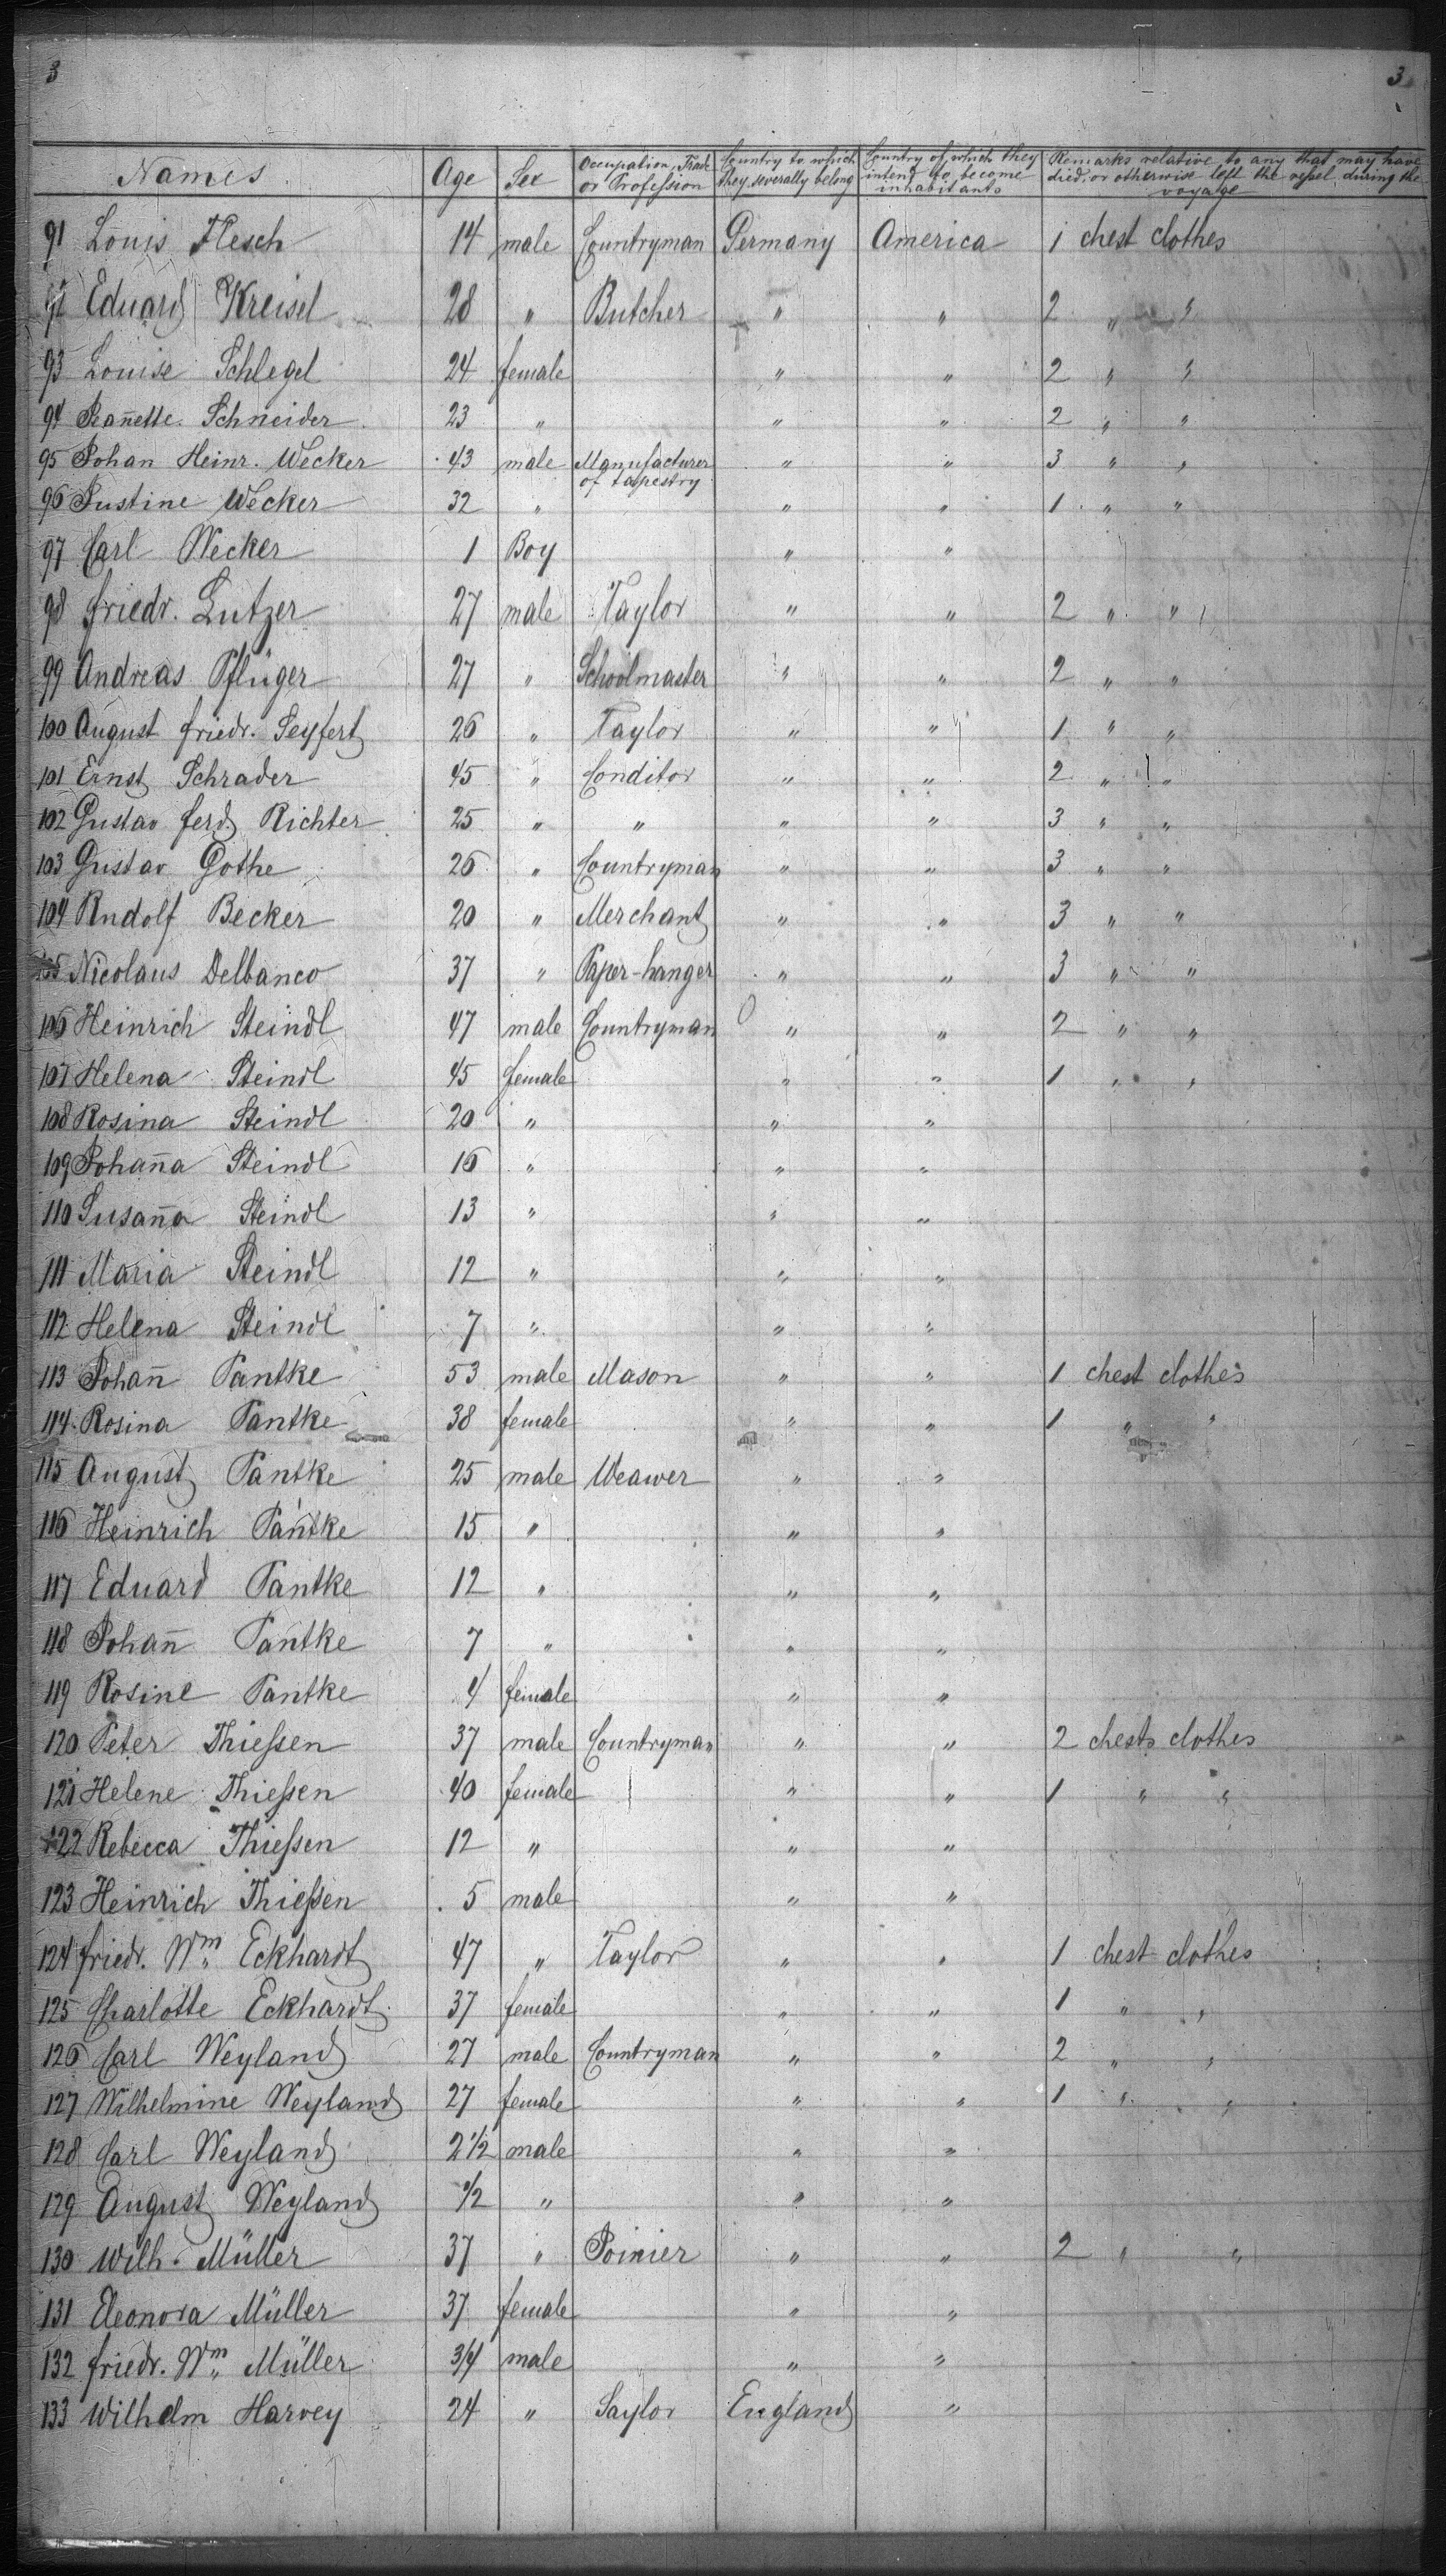 3 3
Names. Age Sex Occupation, Trade or Profession Country to which they severally belong Country of which they intend to become inhabitants Remarks relative to any that may have died, or otherwise left the vessel, during the voyage
91 Louis Flesch 14 male Countryman Germany America 1 chest clothes
92 Eduard Kreisel 28 " Butcher " " 2 " "
93 Louise Schlegel 24 female " " 2 " "
94 Jean̄ette Schneider 23 " " " 2 " "
95 Johan Heinr. Wecker 43 male Manufacturer of tapestry " " 3 " "
96 Justine Wecker 32 " " " 1 " "
97 Carl Wecker 1 Boy " "
98 Friedr. Lutzer 27 male Taylor " " 2 " "
99 Andreas Pflüger 27 " Schoolmaster " " 2 " "
100 August Friedr. Seyfert 26 " Taylor " " 1 " "
101 Ernst Schrader 45 " Conditor " " 2 " "
102 Gustav Ferd. Richter 25 " " " " 3 " "
103 Gustav Gothe 26 " Countryman " " 3 " "
104 Rudolf Becker 20 " Merchant " " 3 " "
105 Nicolaus Delbanco 37 " Paper-hanger " " 3 " "
106 Heinrich Steindl 47 male Countryman " " 2 " "
107 Helena Steindl 45 female " " 1 " "
108 Rosina Steindl 20 " " "
109 Johan̄a Steindl 16 " " "
110 Susan̄a Steindl 13 " " "
111 Maria Steindl 12 " " "
112 Helena Steindl 7 " " "
113 Johan̄ Pantke 53 male Mason " " 1 chest clothes
114 Rosina Pantke 38 female " " 1 " "
115 August Pantke 25 male Weawer " "
116 Heinrich Pantke 15 " " "
117 Eduard Pantke 12 " " "
118 Johan̄ Pantke 7 " " "
119 Rosine Pantke 4 female " "
120 Peter Thieſsen 37 male Countryman " " 2 chests clothes
121 Helene Thieſsen 40 female " " 1 " "
122 Rebecca Thieſsen 12 " " "
123 Heinrich Thieſsen 5 male " "
124 Friedr. Wm Eckhardt 47 " Taylor " " 1 chest clothes
125 Charlotte Eckhardt 37 female " " 1 " "
126 Carl Weyland 27 male Countryman " " 2 " "
127 Wilhelmine Weyland 27 female " " 1 " "
128 Carl Weyland 2 1/2 male " "
129 August Weyland 1/2 " " "
130 Wilh. Müller 37 " Joinier " " 2 " "
131 Eleonora Müller 37 female " "
132 Friedr. Wm Müller 3/4 male " "
133 Wilhelm Harvey 24 " Saylor England "